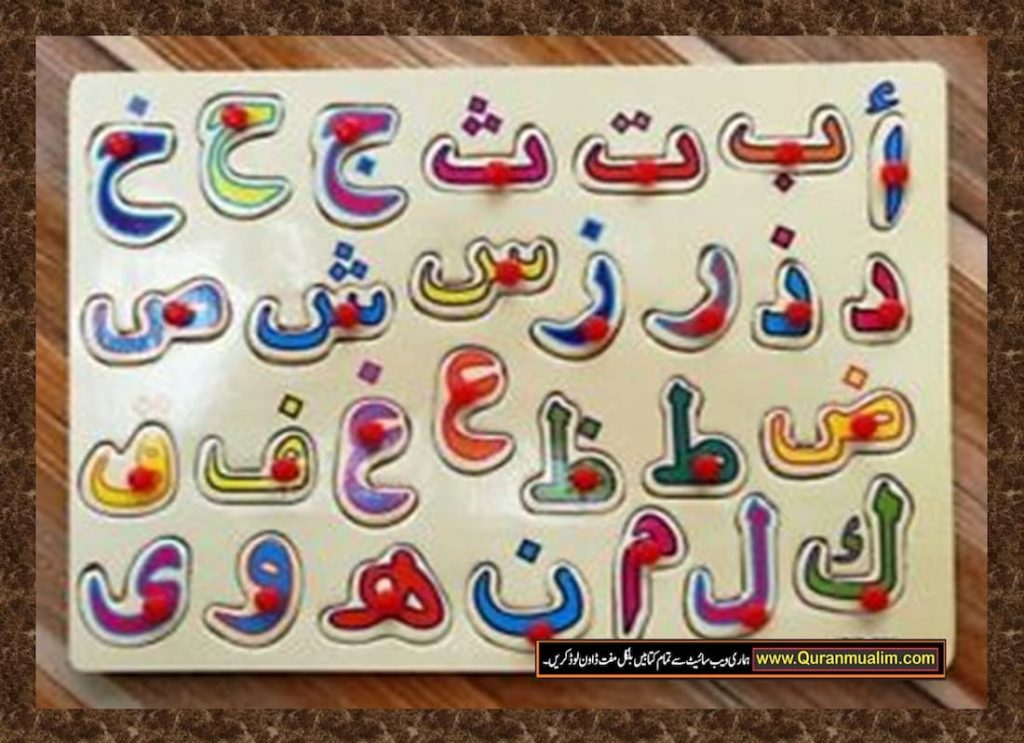 أ ب ت ث ج ح خ
د ذ ر ز س ش ص
ض ط ظ ع غ ف ق
ك ل م ن ه و ى
ہماری ویب سائیٹ سے تمام کتابیں بلکل مفت ڈاون لوڈ کریں۔ www.Quranmualim.com